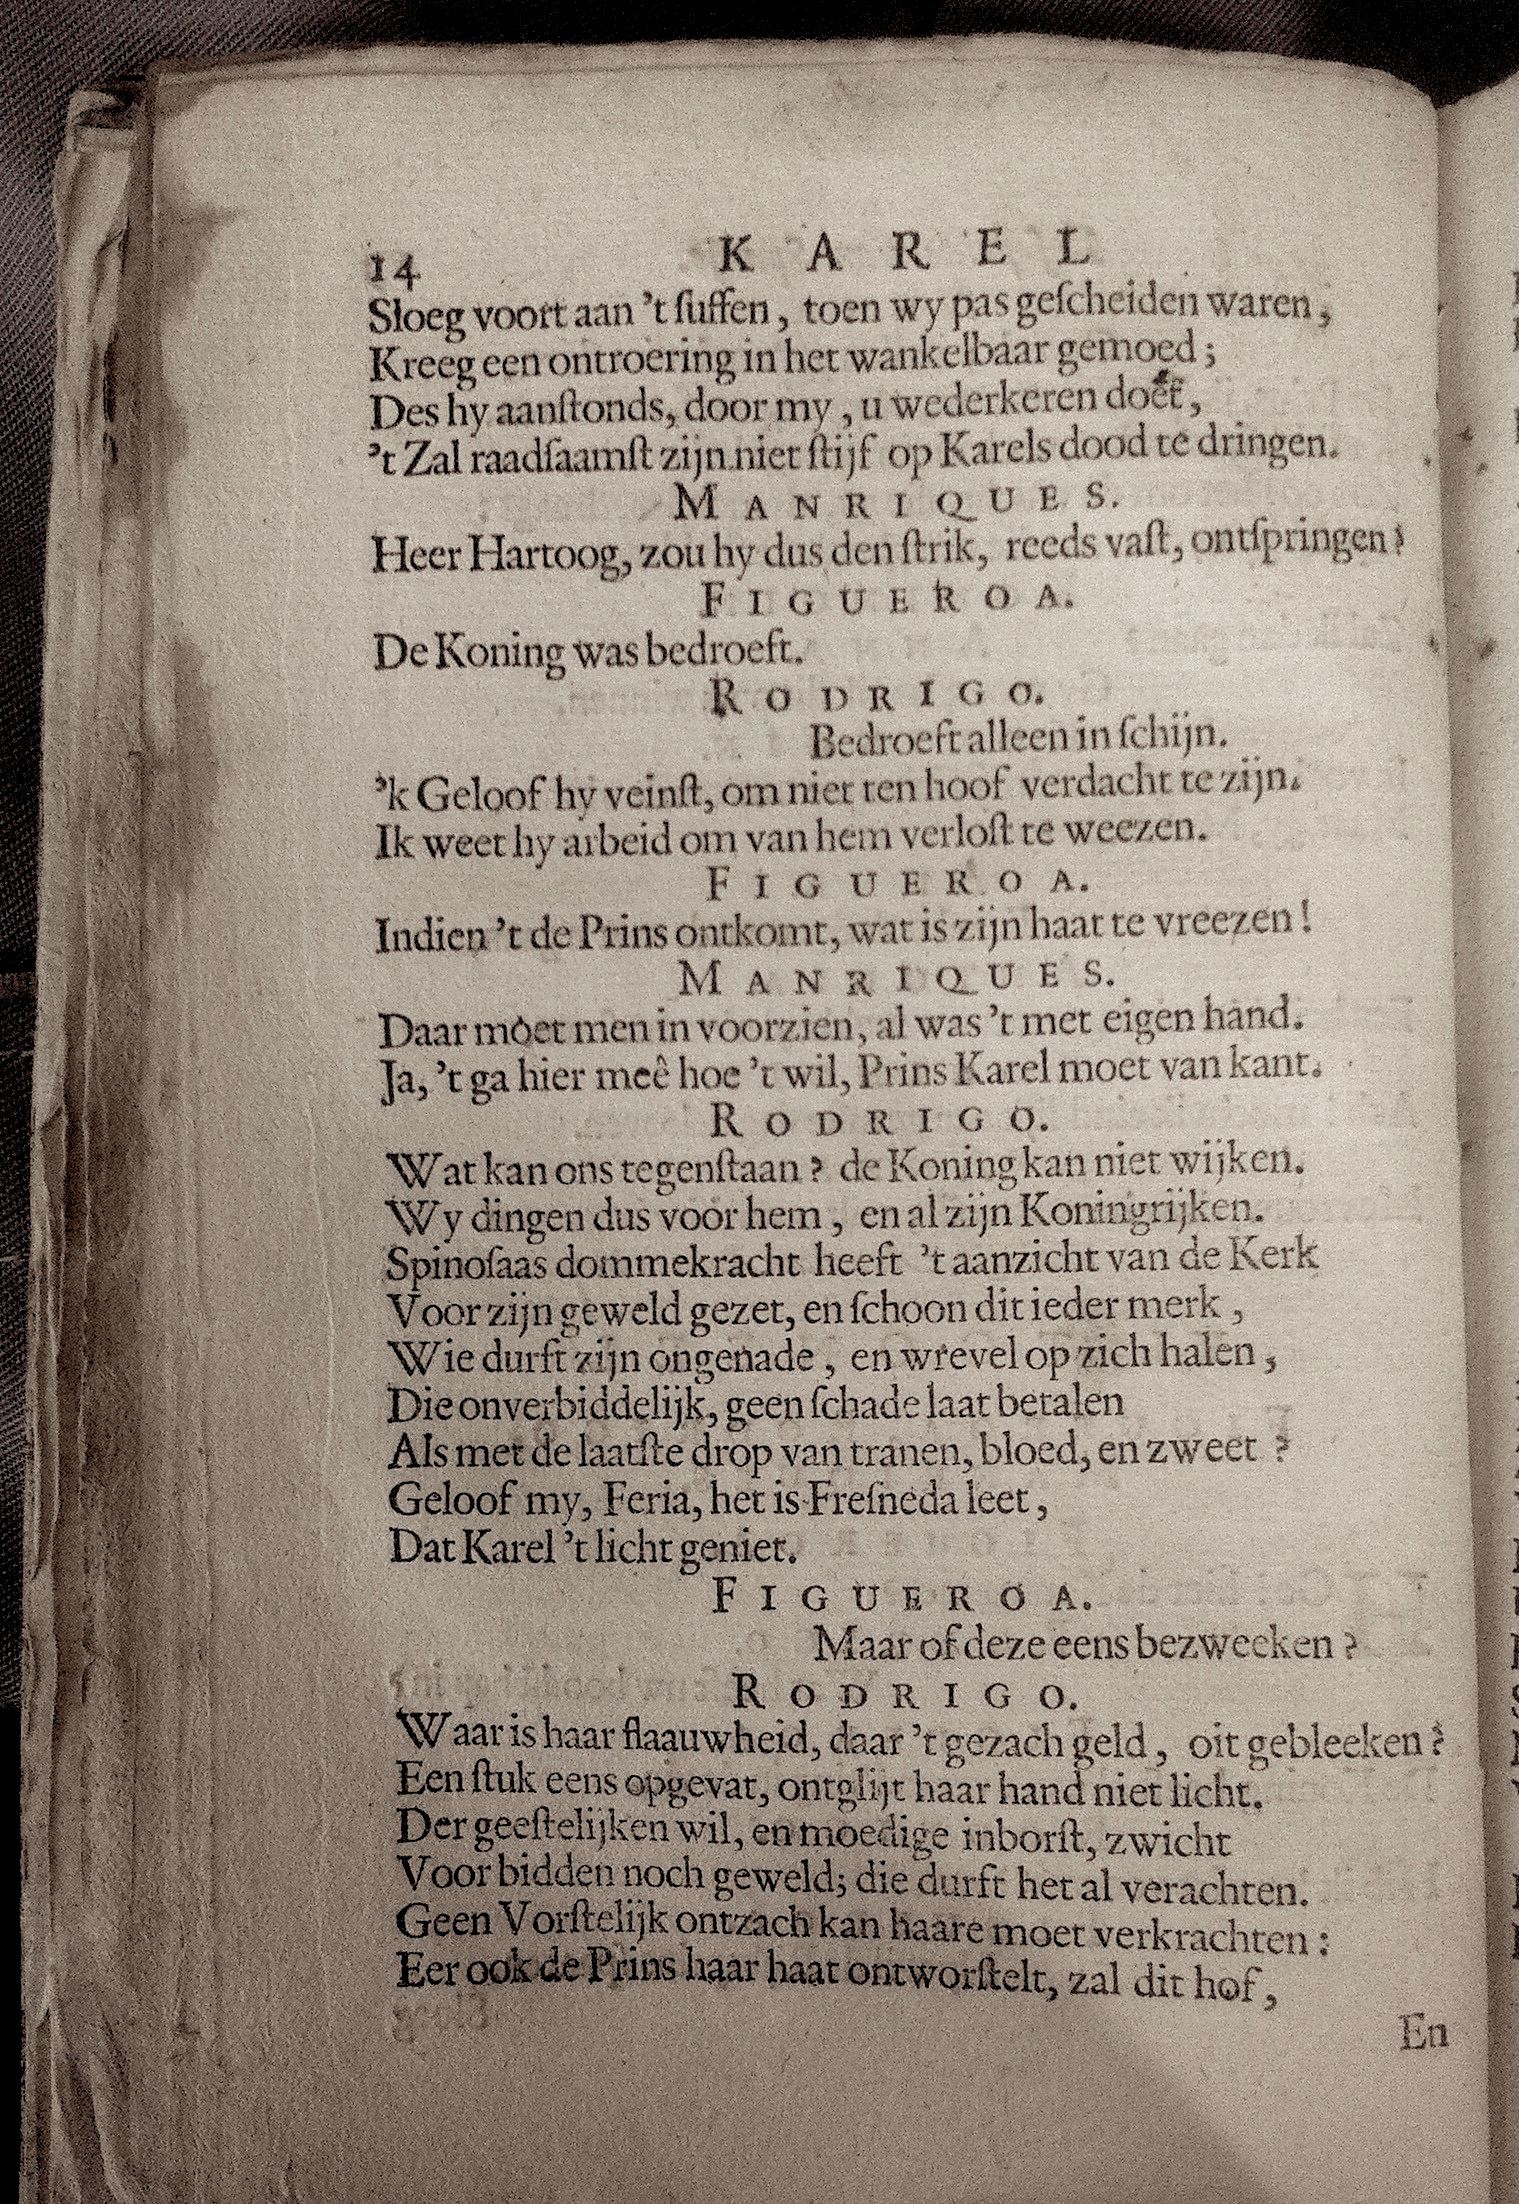 14 KAREL
Sloeg voort aan 't ſuffen, toen wy pas geſcheiden waren,
Kreeg een ontroering in het wankelbaar gemoed;
Des hy aanſtonds, door my, u wederkeren doet,
't Zal raadſaamſt zijn niet ſtijf op Karels dood te dringen.
MANRIQUES.
Heer Hartoog, zou hy dus den ſtrik, reeds vaſt, ontſpringen?
FIGUEROA.
De Koning was bedroeft.
RODRIGO.
Bedroeft alleen in ſchijn.
'k Geloof hy veinſt, om niet ten hoof verdacht te zijn.
Ik weet hy arbeid om van hem verloſt te weezen.
FIGUEROA.
Indien 't de Prins ontkomt, wat is zijn haat te vreezen!
MANRIQUES.
Daar moet men in voorzien, al was 't met eigen hand.
Ja, 't ga hier meê hoe 't wil, Prins Karel moet van kant.
RODRIGO.
Wat kan ons tegenſtaan? de Koning kan niet wijken.
Wy dingen dus voor hem, en al zijn Koningrijken.
Spinoſaas dommekracht heeft 't aanzicht van de Kerk
Voor zijn geweld gezet, en ſchoon dit ieder merk,
Wie durft zijn ongenade, en wrevel op zich halen,
Die onverbiddelijk, geen ſchade laat betalen
Als met de laatſte drop van tranen, bloed, en zweet?
Geloof my, Feria, het is Freſneda leet,
Dat Karel 't licht geniet.
FIGUEROA.
Maar of deze eens bezweeken?
RODRIGO.
Waar is haar flaauwheid, daar 't gezach geld, oit gebleeken?
Een ſtuk eens opgevat, ontglijt haar hand niet licht.
Der geeſtelijken wil, en moedige inborſt, zwicht
Voor bidden noch geweld; die durft het al verachten.
Geen Vorſtelijk ontzach kan haare moet verkrachten:
Eer ook de Prins haar haat ontworſtelt, zal dit hof,
En